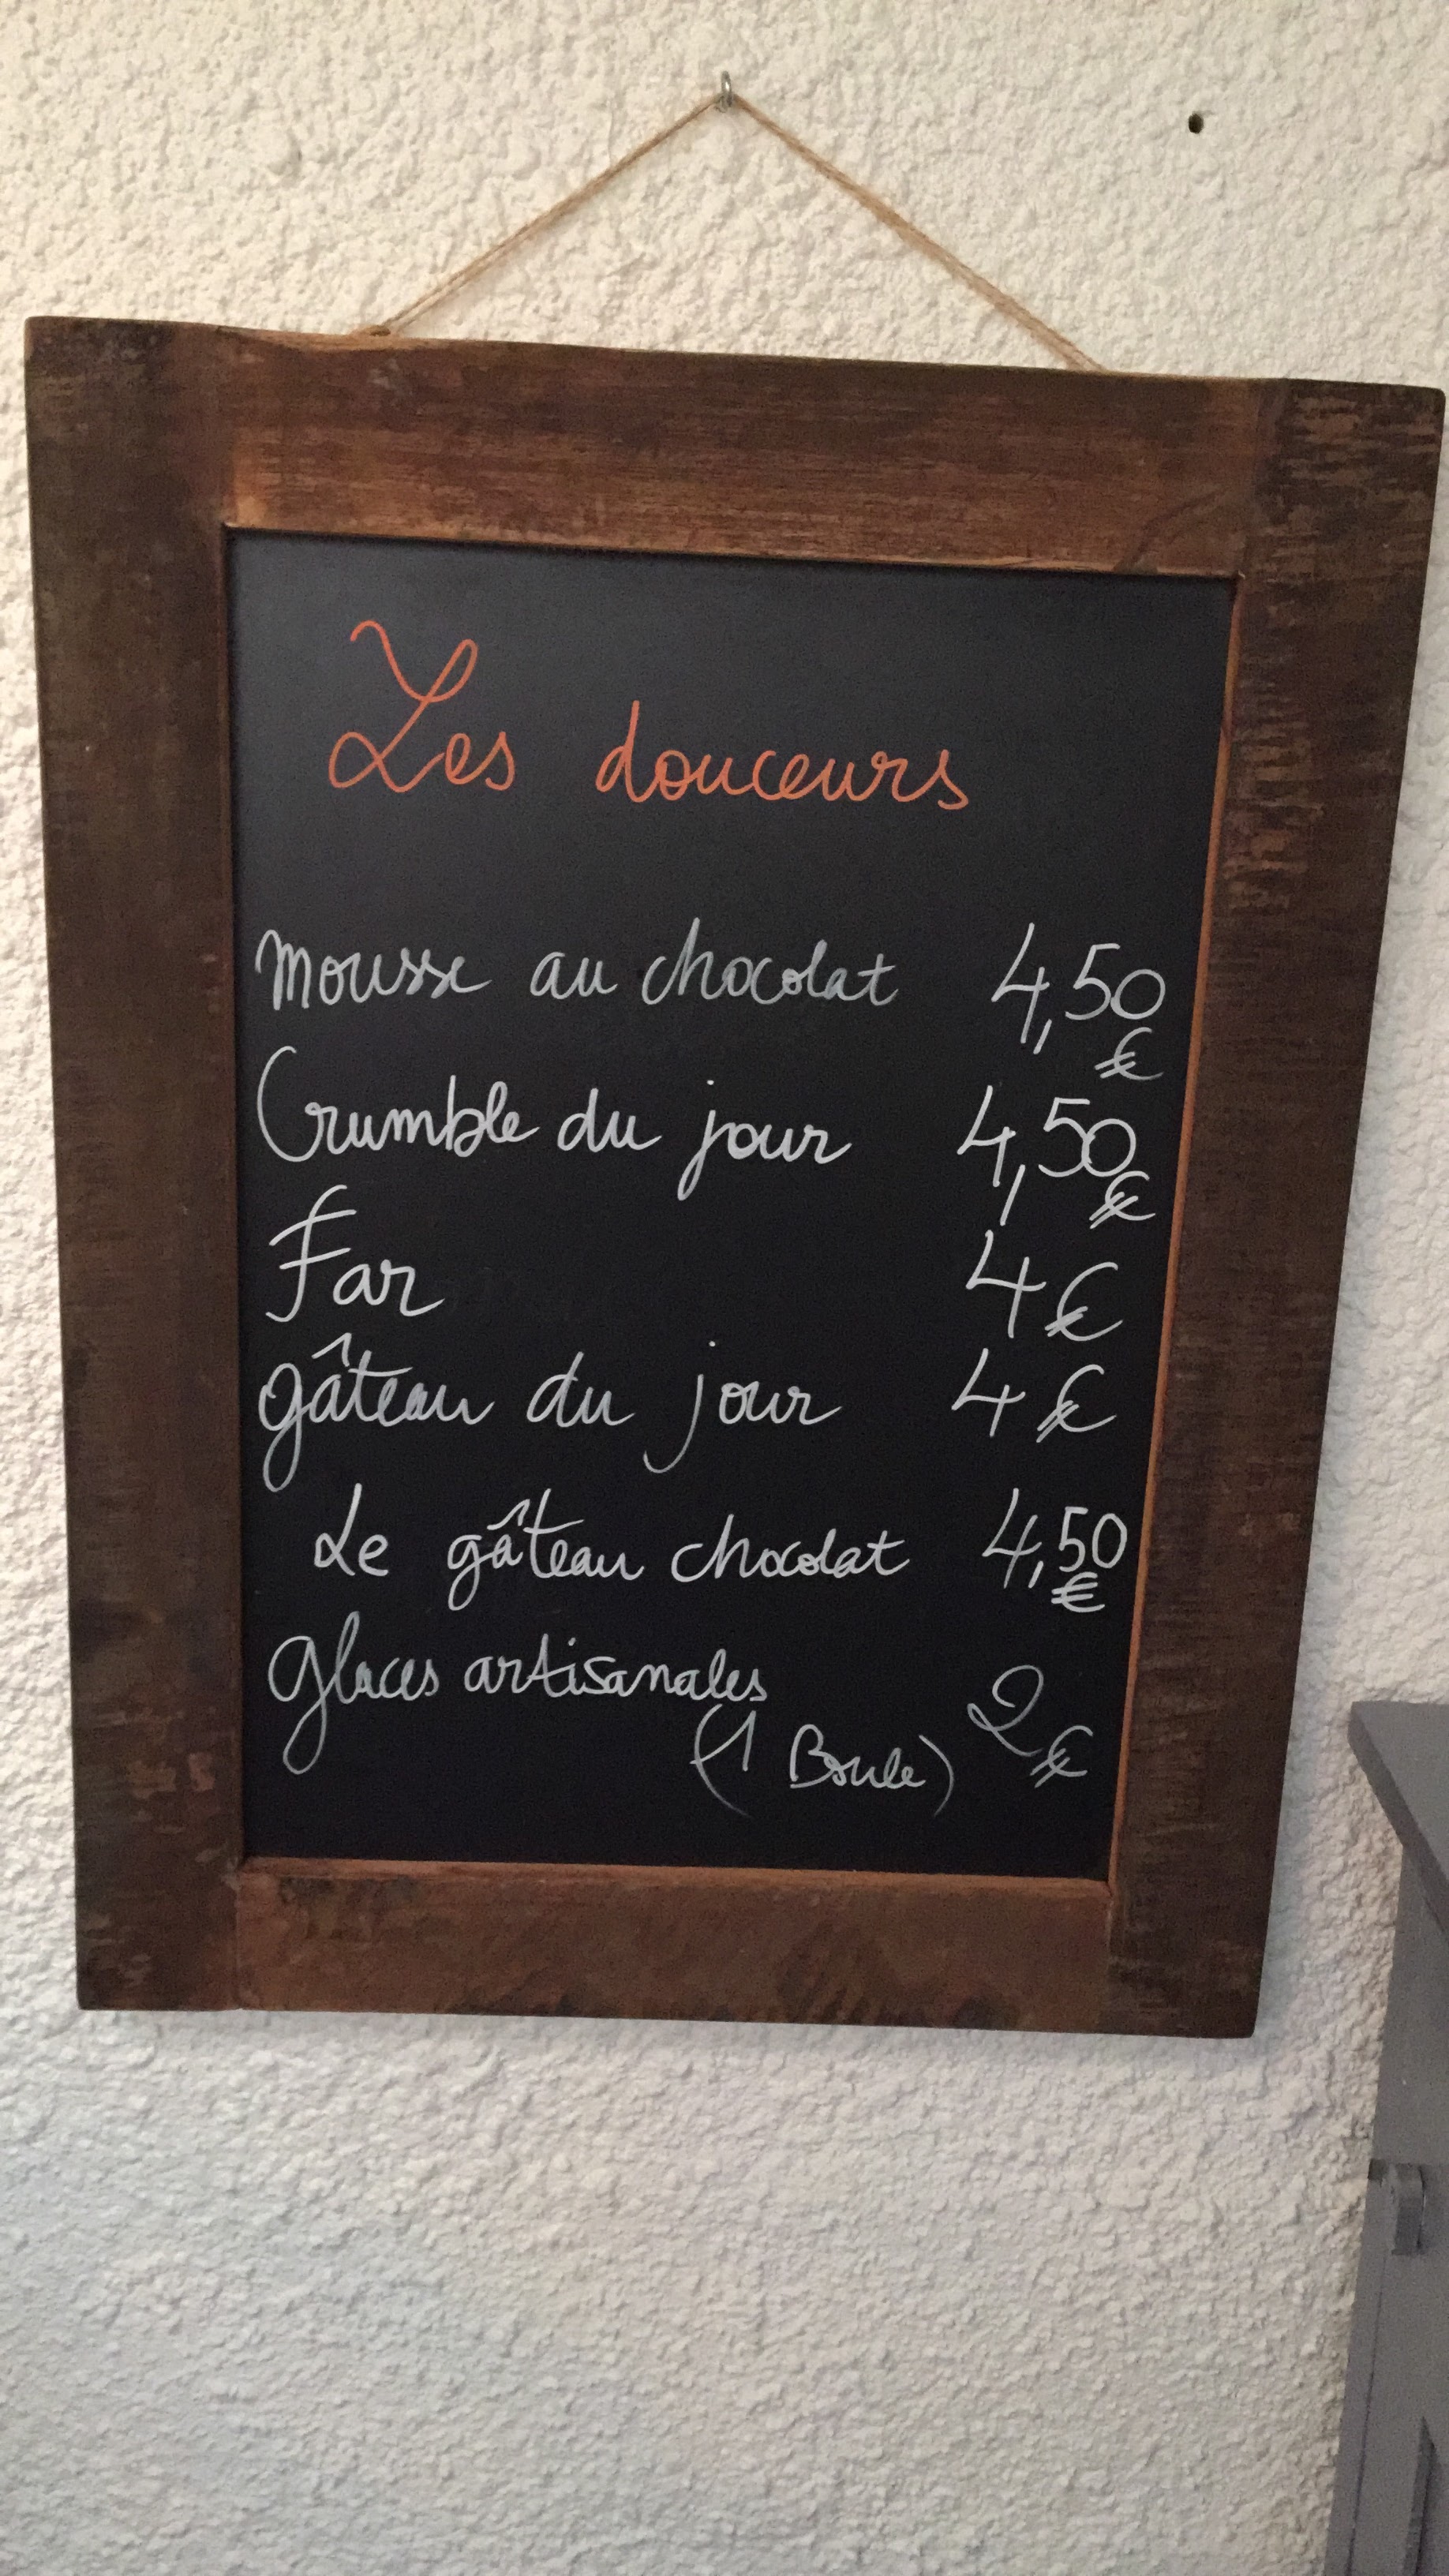 Les douceurs
Mousse au chocolat 4,50 €
Crumble du jour 4,50 €
Far 4 €
gâteau du jour 4 €
Le gâteau chocolat 4,50 €
Glaces artisanales
(1 Boule) 2 €